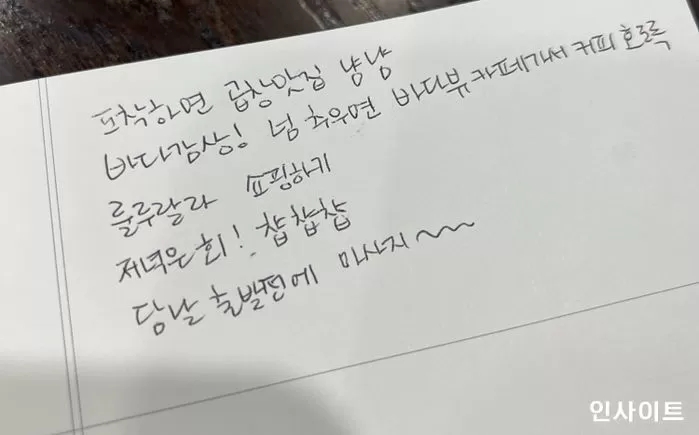 도착하면 곱창맛집 냠냠
바다감상! 넘 추우면 바다뷰 카페가서 커피 호로록
룰루랄라 쇼핑하기
저녁은 회! 챱챱챱
담날 출발전에 마사지~~
인사이트